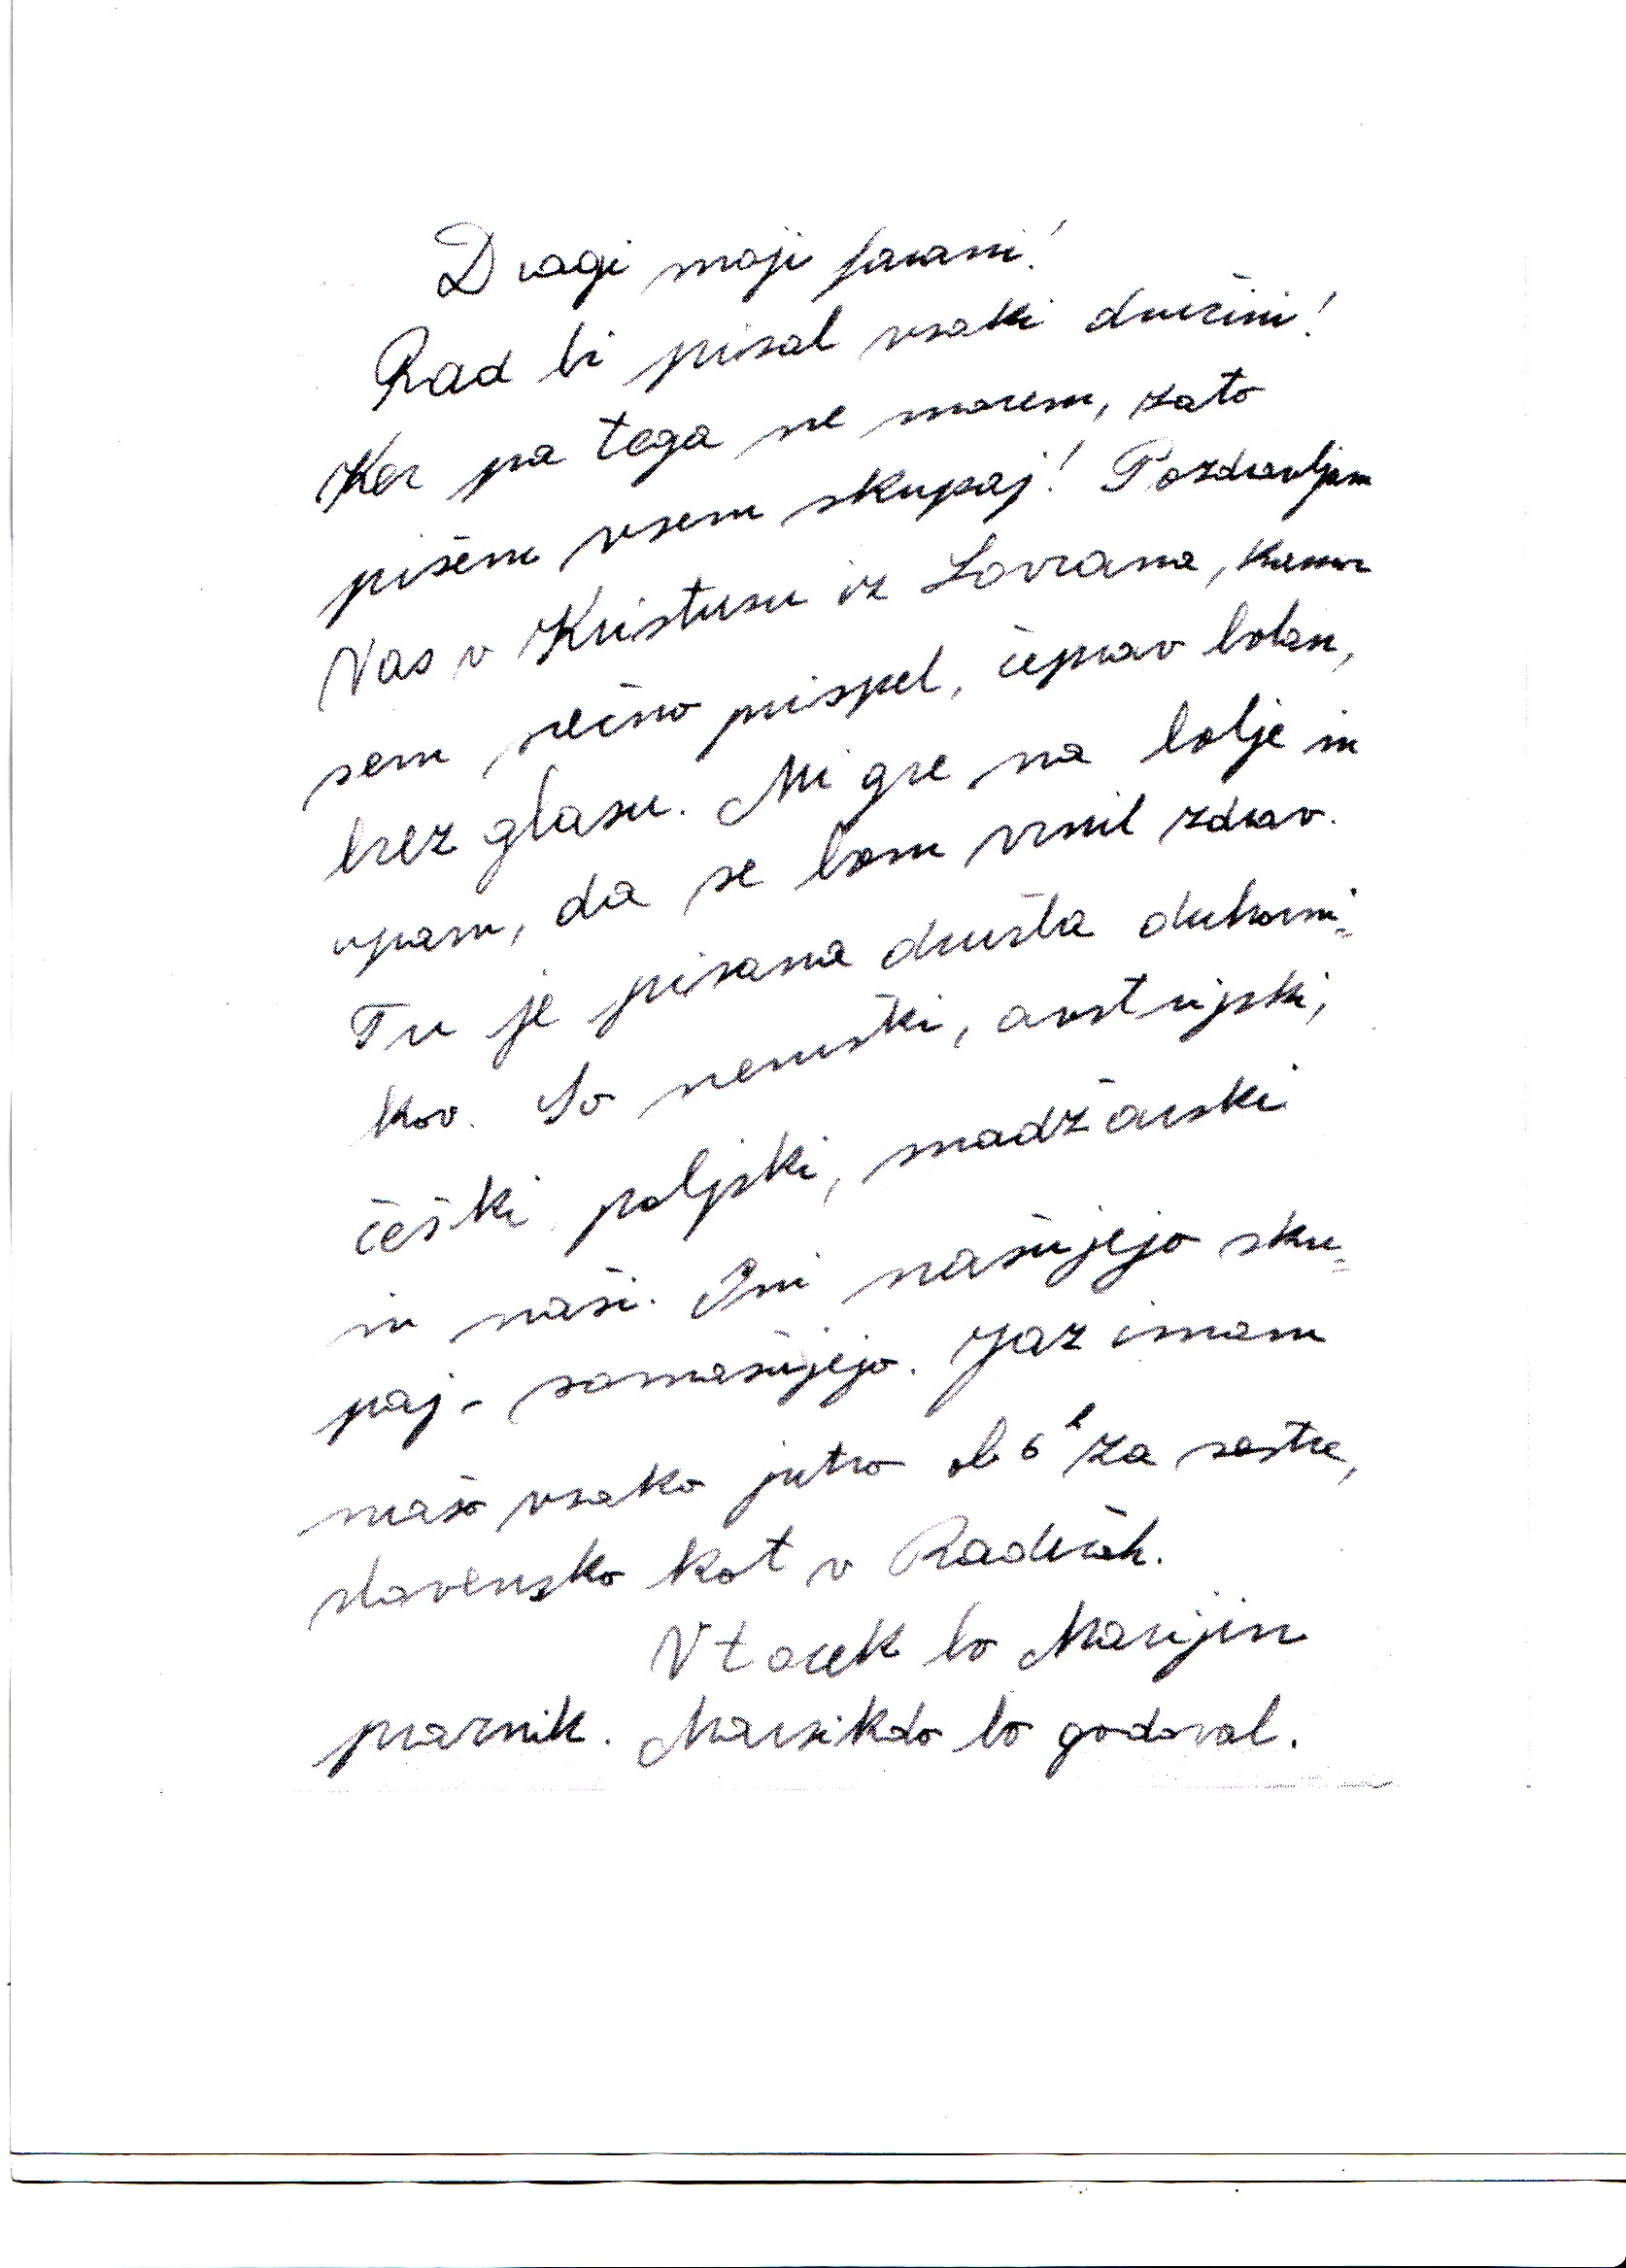 Dragi moji farani!
Rad bi pisal vsaki družini!
Ker pa tega ne morem, zato
pišem vsem skupaj! Pozdravljam
Vas v Kristusu iz Lovrana, kamor
sem srečno prispel, čeprav bolan,
brez glasu. Mi gre na bolje in
upam, da se bom vrnil zdrav.
Tu je pisana družba duhovni=
kov. So nemški, avstrijski,
češki poljski, madžarski
in naši. Oni mašujejo sku=
paj - somašujejo. Jaz imam
mašo vsako jutro ob 6h za sestre,
slovensko kot v Radečah.
V torek bo Marijin
praznik. Marsikdo bo godoval.